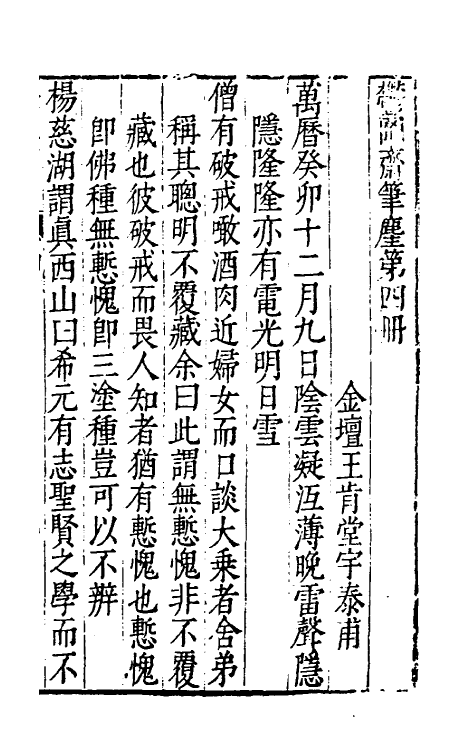 鬱岡齋筆麈第四冊
金壇王肯堂宇泰甫
萬曆癸卯十二月九日陰雲凝沍薄晚雷聲隱
隱隆隆亦有電光明日雪
僧有破戒噉酒肉近婦女而口談大乘者舍弟
稱其聰明不覆藏余曰此謂無慙愧非不覆
藏也彼破戒而畏人知者猶有慙愧也慙愧
卽佛種無慙愧卽三塗種豈可以不辨
楊慈湖謂眞西山曰希元有志聖賢之學而不